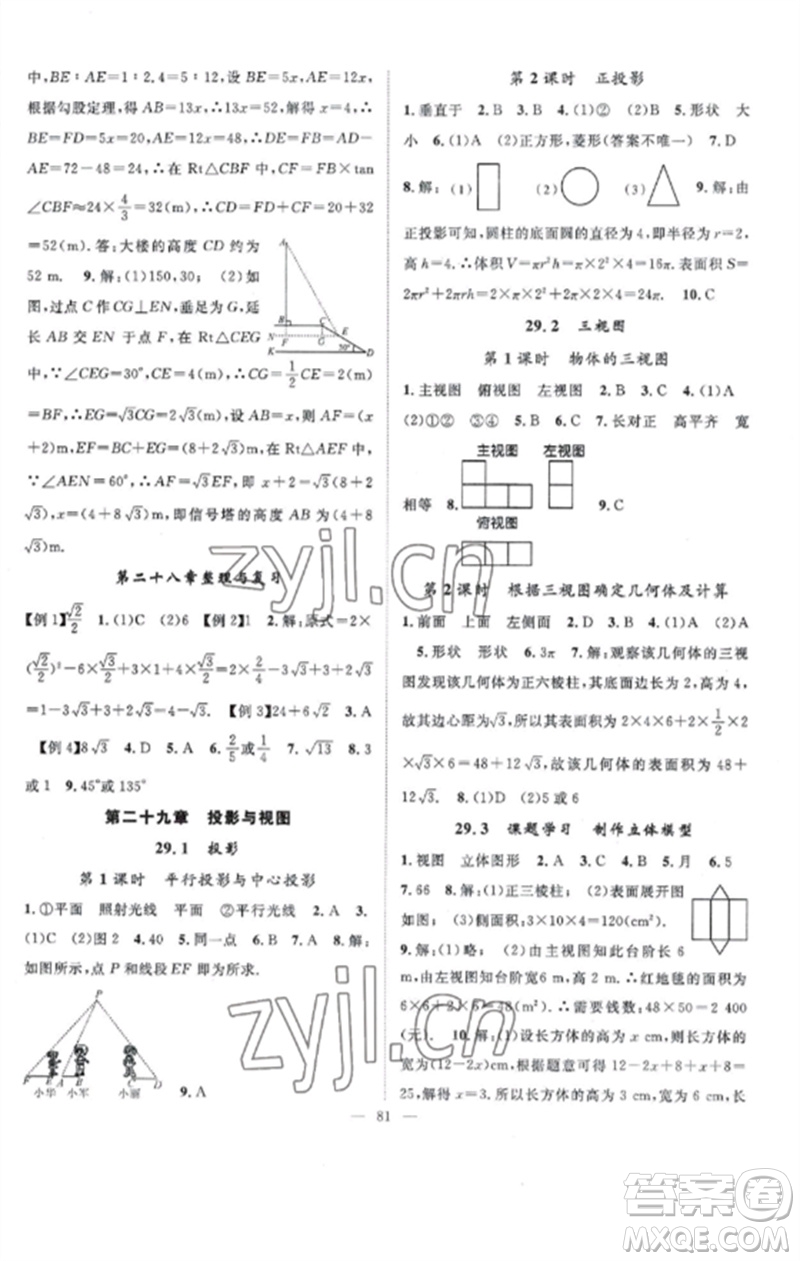 中,BE∶AE=1∶2.4=5∶12,设 BE=5x,AE=12x,
根据勾股定理,得 AB=13x∴13x=52,解得 x=4∴
BE=FD=5x=20,AE=12x=48,∴DE=FB=AD-
AE=72-48=24∴在 Rt△CBF 中,CF=FB×tan
∠CBF≈24×4/3=32(m)∴CD=FD+CF=20+32
=52(m).答:大楼的高度 CD 约为
52 m. 9.解:(1)150,30; (2)如
图,过点 C 作 CG⊥EN,垂足为 G,延
长 AB 交 EN 于点 F,在 Rt△CEG
中,∵∠CEG=30°,CE=4∴CG=1/2
CE=2∴EG=√3CG=2√3(m),设 AB=x,则 AF=(x+
2)m,EF=BC+EG=(8+2√3)m,在 Rt△AEF 中,
∵∠AEN=60°,∴AF=√3EF,即 x+2=√3(8+2
√3),x=(4+8√3)m,即信号塔的高度 AB 为(4+8
√3)m.
A
B
C
N
F
G
E
K
30°
D
第二十八章整理与复习
【例1】√2/2 1.(1)C (2)6 【例2】2.解:原式=2×
(√2/2)²-6×√3/3+3×1+4×√3/2=2×2/4-3√3+3+2√3=
1-3√3+3+2√3 【例3】24+6√3 3.A
【例4】8√3 4.D 5.A 6.2/5或1/4 7.√13 8.3
或1 9.45°或135°
第二十九章 投影与视图
29.1 投影
第1课时 平行投影与中心投影
1.①平面 照射光线 平面 ②平行光线 2.A 3.
(1)C (2)图2 4.40 5.同一点 6.B 7.B 8.解:
如图所示,点 P 和线段 EF 即为所求.
P
F E A B C D
小华 小军 小丽 9.A
第2课时 正投影
1.垂直于 2.B 3.B 4.(1)② (2)B 5.形状 大
小 6.(1)A (2)正方形,菱形(答案不唯一) 7.D
8.解:(1) (2) (3) 9.解:由
正投影可知,圆柱的底面圆的直径为4,即半径为 r=2,
高 h=4.∴体积 V=πr²h=π×2²×4=16π.表面积 S=
2πr²+2πrh=π×2×2²+2π×2×4=24π. 10.C
29.2 三视图
第1课时 物体的三视图
1.主视图 俯视图 左视图 2.B 3.B 4.(1)A
(2)①② ③④ 5.B 6.C 7.长对正 高平齐 宽
主视图 左视图
相等 8. 9.C
俯视图
第2课时 根据三视图确定几何体及计算
1.前面 上面 左侧面 2.B 3.B 4.(1)A (2)A
5.形状 形状 6.3π 7.解:观察该几何体的三视
图发现该几何体为正六棱柱,其底面边长为2,高为4,
故其边心距为√3,所以其表面积为2×4×6+2×1/2×2
×√3×6=48+12√3,故该几何体的表面积为48+
12√3. 8.(1)D (2)5或6
29.3 课题学习 制作立体模型
1.视图 立体图形 2.B 3.B 4.B 5.月 6.5
7.66 8.解:(1)正三棱柱; (2)表面展开图
如图; (3)侧面积:3×10×4=120(cm²).
9.解:(1)略; (2)由主视图知此台阶长6
m,由左视图知此台阶宽6 m,高2 m∴红地毯的面积为
6×6+2×6=48(m²)∴需要钱数:48×50=2 400
(元). 10.解:(1)设长方体的高为 x cm,则长方体的
宽为(12-2x)cm,根据题意可得12-2x+8+x+8=
25,解得 x=3.所以长方体的高为3 cm,宽为6 cm,长
— 81 —
zyjl.cn
zyjl.cn
答案卷